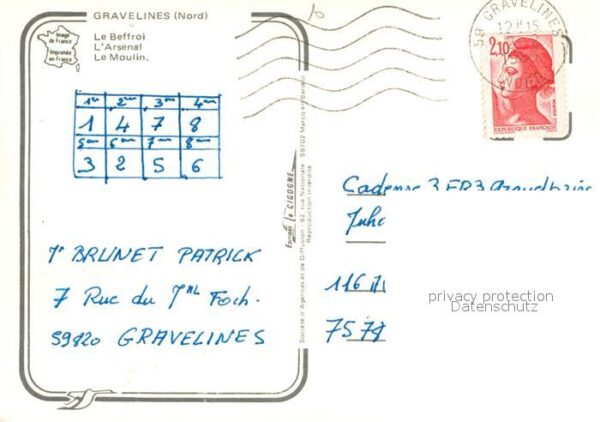 GRAVELINES (Nord)
Image de France
Imprimée en France
Le Beffroi
L'Arsenal
Le Moulin.
1er 2ème 3ème 4ème
1 4 7 8
5ème 6ème 7ème 8ème
3 2 5 6
Mr BRUNET PATRICK
7 Rue du Mal Foch.
59820 GRAVELINES
Editions la CIGOGNE
Société d'Agences et de Diffusion - 92, rue Nationale 59702 Marcq en Baroeul
Reproduction interdite
59 GRAVELINES
12 H 15
2,10
REPUBLIQUE FRANÇAISE
Cadense 3 FR3
116
privacy protection
Datenschutz